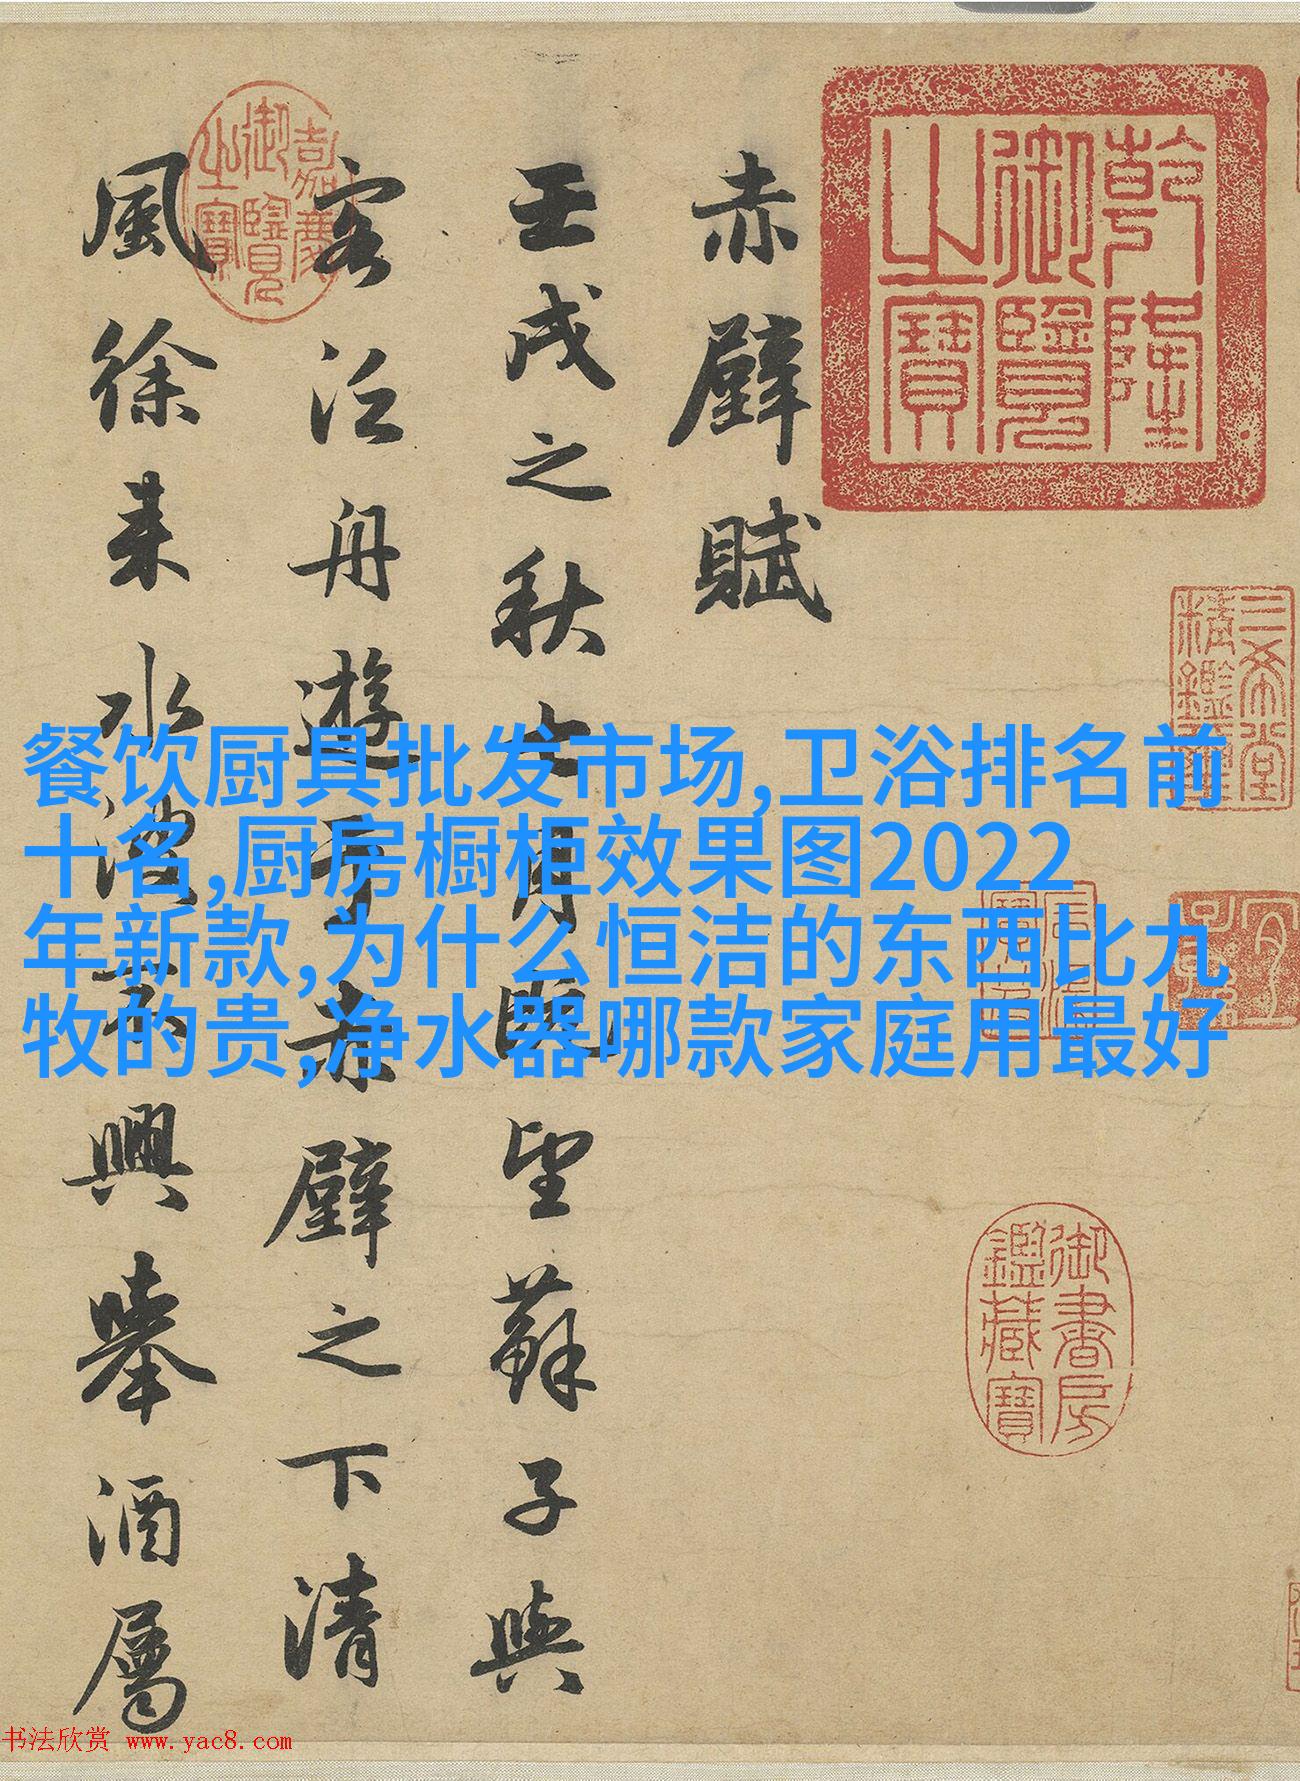 赤壁賦
壬戌之秋七月既望蘇子與
客泛舟遊于赤壁之下清
風徐来水波不興舉酒屬
乾隆御覽之寶
嘉慶御覽之寶
三希堂精鑑璽
宜子孫
御書房鑑藏寶
餐饮厨具批发市场,卫浴排名前
十名,厨房橱柜效果图2022
年新款,为什么恒洁的东西比九
牧的贵,净水器哪款家庭用最好
书法欣赏 www.yac8.com